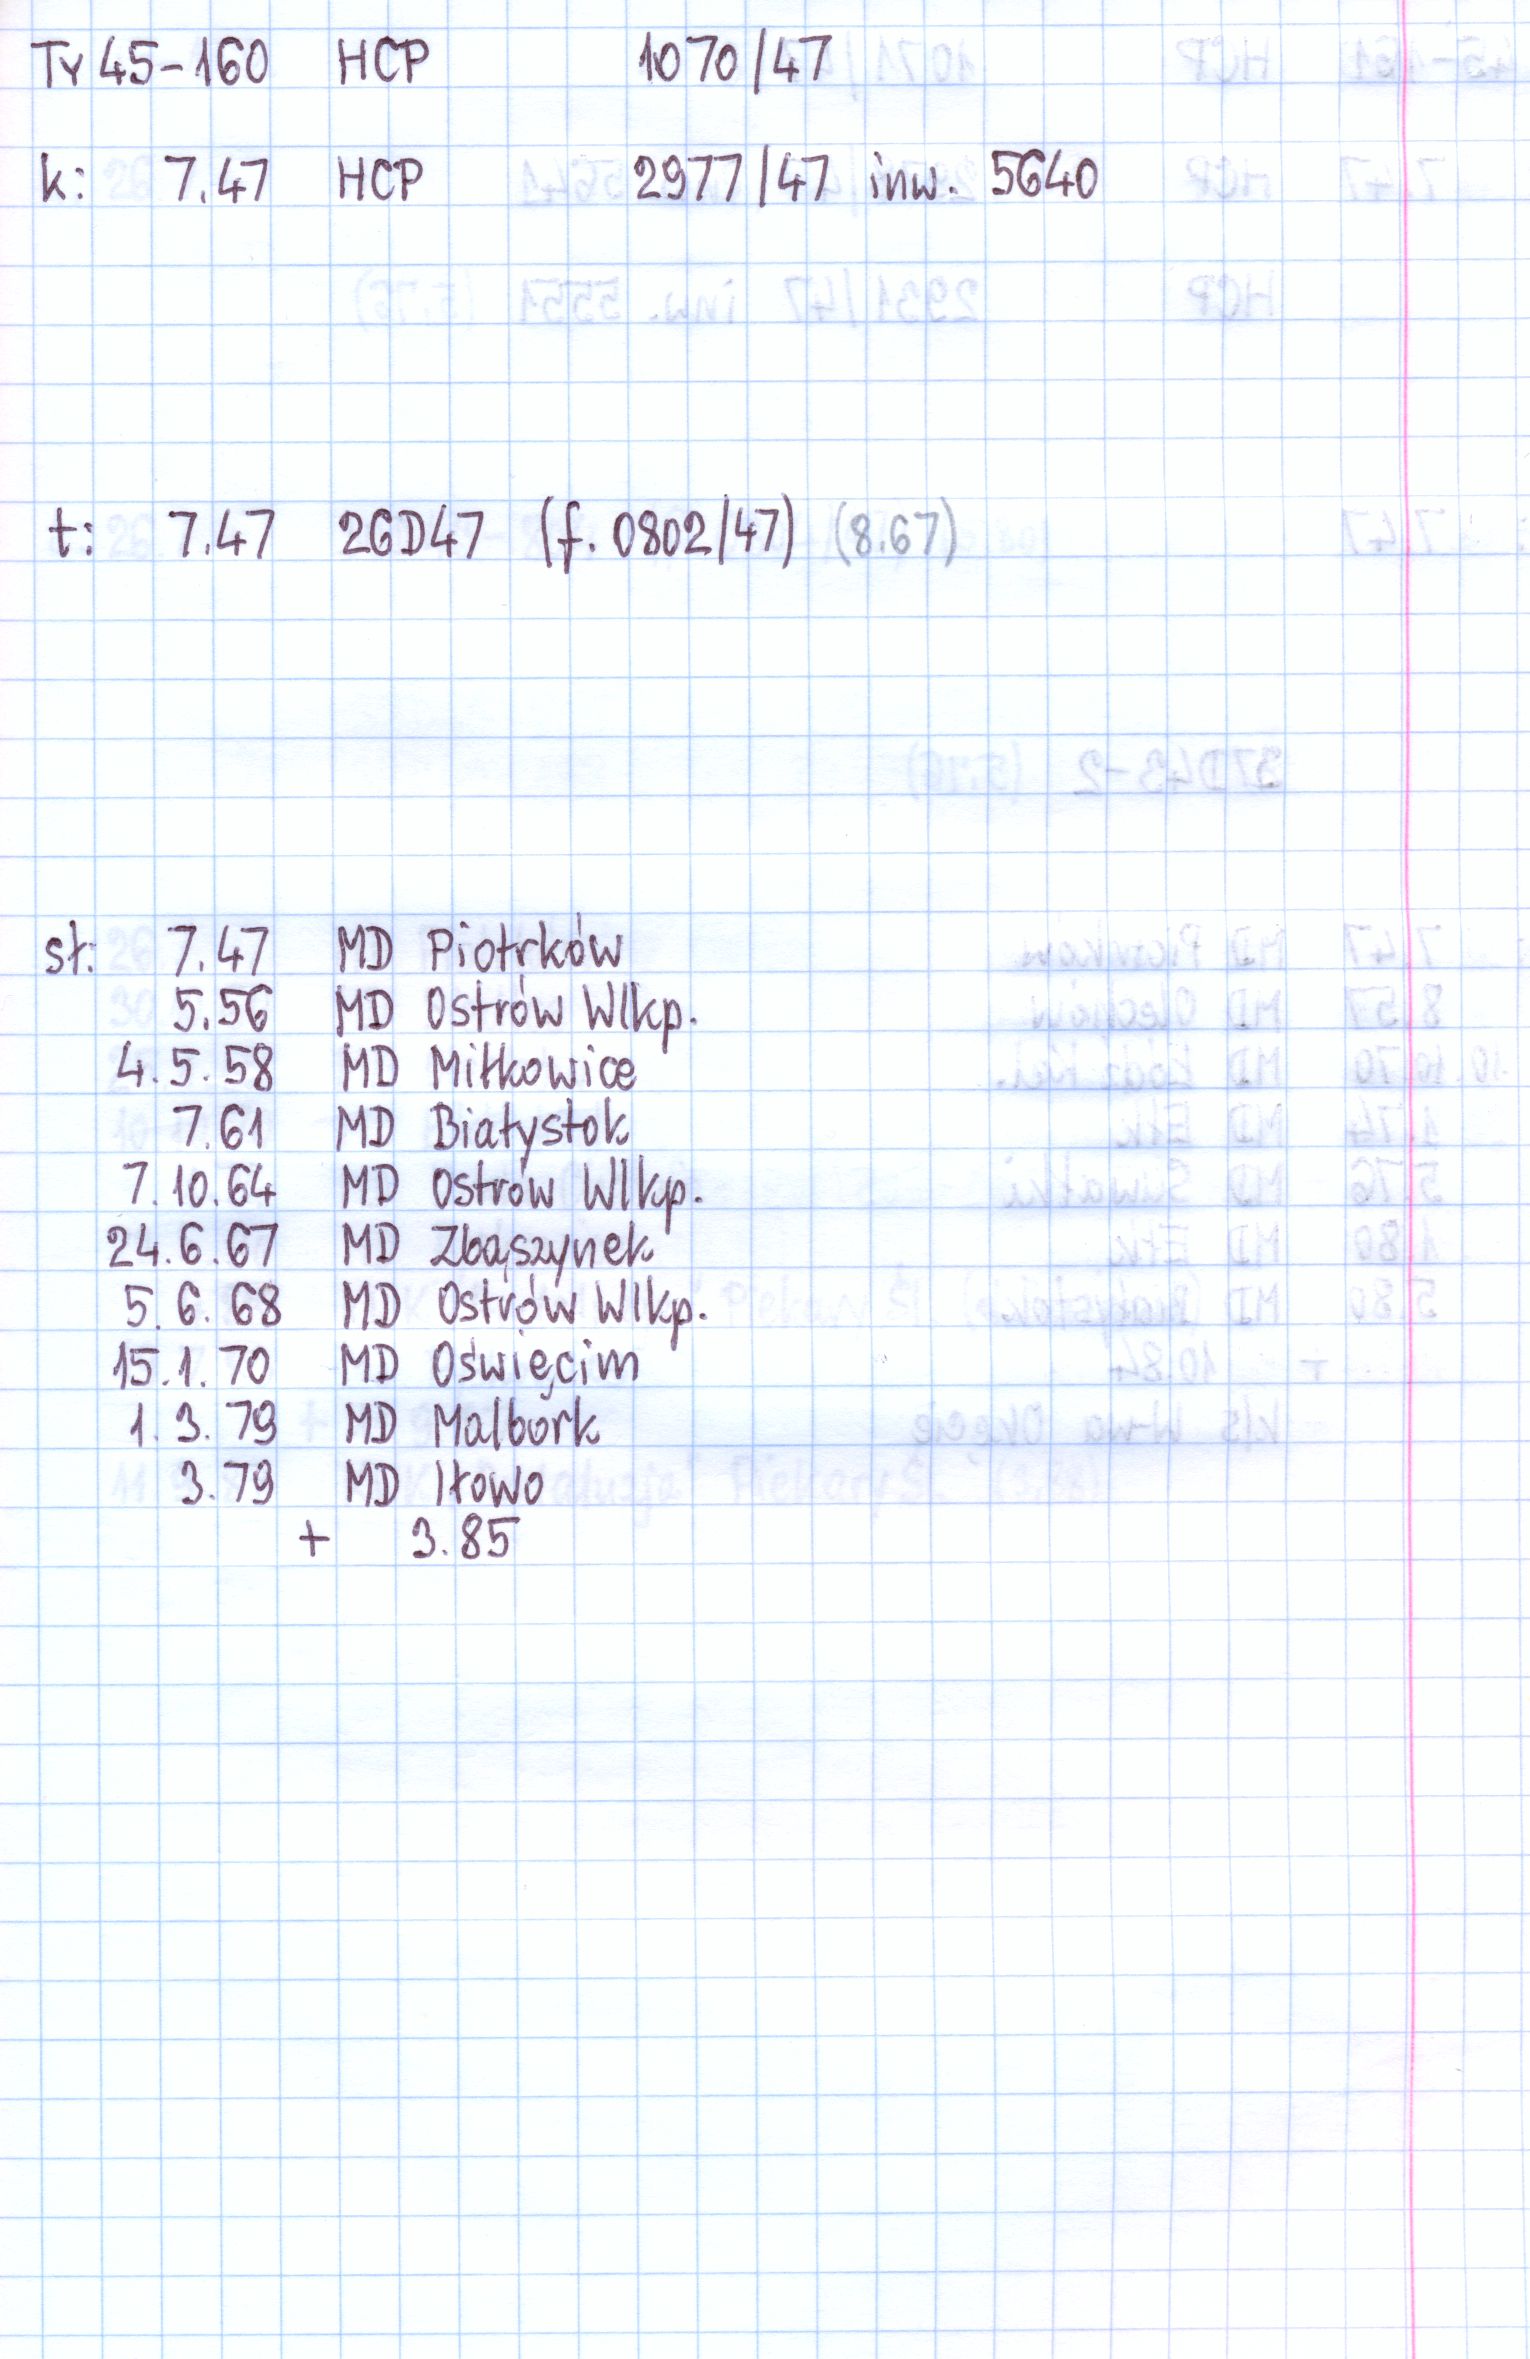 Ty 45-160 HCP 1070/47
k: 7.47 HCP 2977/47 inw. 5640
t: 7.47 26D47 (f. 0802/47) (8.67)
sł: 7.47 MD Piotrków
5.56 MD Ostrów Wlkp.
4.5.58 MD Miłkowice
7.61 MD Białystok
7.10.64 MD Ostrów Wlkp.
24.6.67 MD Zbąszynek
5.6.68 MD Ostrów Wlkp.
15.1.70 MD Oświęcim
1.3.79 MD Malbork
3.79 MD Iłowo
+ 3.85